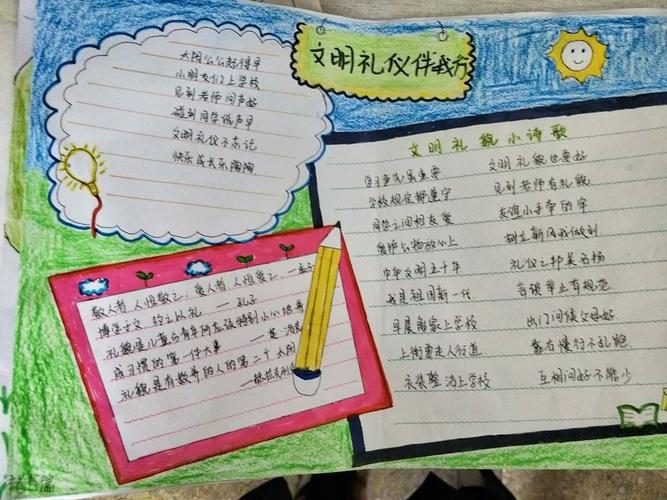 文明礼仪伴我行
太阳公公起得早
小朋友们上学校
见到老师问声好
碰到同学说声早
文明礼仪不忘记
快乐成长乐陶陶
文明礼貌小诗歌
学习争先虽重要 文明礼貌也要好
学校规定都遵守 见到老师有礼貌
同学之间相友爱 友谊小手牵的牢
爱护公物放心上 树立新风我做到
中华文明五千年 礼仪之邦美名扬
我是祖国新一代 言谈举止有规范
早晨离家上学校 出门问候父母好
上街要走人行道 靠右慢行不乱跑
衣装整洁上学校 互相问好不能少
敬人者 人恒敬之,爱人者 人恒爱之 —孟子
博学于文 约之以礼 —孔子
礼貌是儿童与青年所应该特别小心地养
成习惯的第一件大事
礼貌是有教养的人的第二个太阳